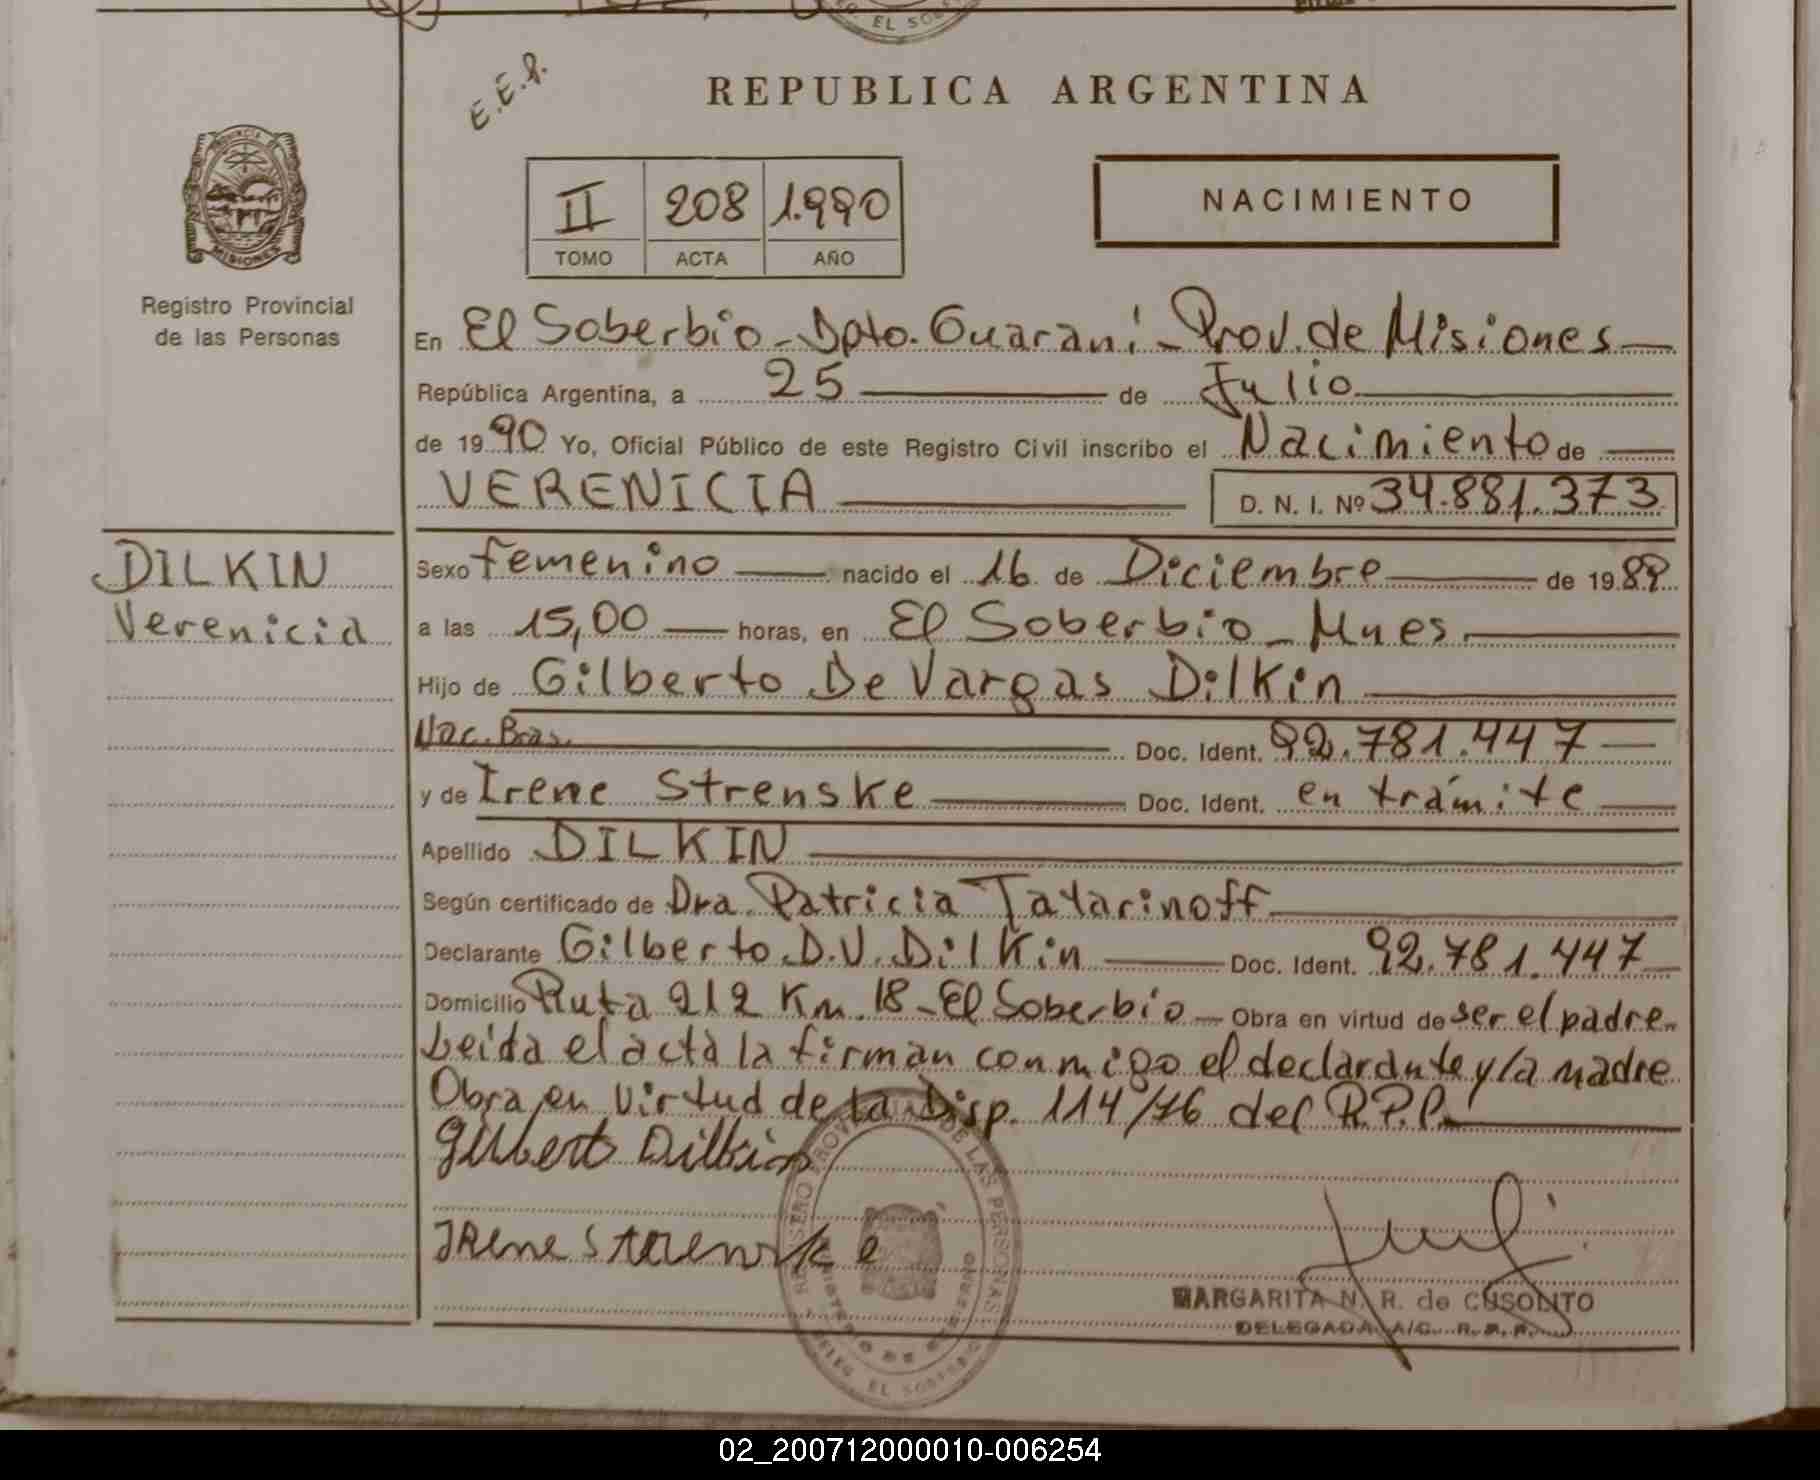 EL SOBE
E.E.R.
REPUBLICA ARGENTINA
PROVINCIA DE
MISIONES
II 208 1.990
TOMO ACTA AÑO
NACIMIENTO
Registro Provincial
de las Personas
En El Soberbio - Dpto. Guaraní - Prov. de Misiones
República Argentina, a 25 de Julio
de 1990 Yo, Oficial Público de este Registro Civil inscribo el Nacimiento de
VERENICIA D. N. I. Nº 34.881.373
DILKIN
Verenicia
Sexo femenino nacido el 16 de Diciembre de 1989
a las 15,00 horas, en El Soberbio - Mnes.
Hijo de Gilberto De Vargas Dilkin
Nac. Bras. Doc. Ident. 92.781.447
y de Irene Strenske Doc. Ident. en trámite
Apellido DILKIN
Según certificado de Dra. Patricia Tatarinoff
Declarante Gilberto D.V. Dilkin Doc. Ident. 92.781.447
Domicilio Ruta 212 Km. 18 - El Soberbio - Obra en virtud de ser el padre.
Leida el acta la firman conmigo el declarante y la madre
Obra en virtud de la Disp. 114/76 del R.P.P.
Gilberto Dilkin
Irene Strenske
REGISTRO PROVINCIAL DE LAS PERSONAS
MINISTERIO DE GOBIERNO
DELEG. EL SOBERBIO
MARGARITA N. R. de CUSOLITO
DELEGADA A/C. R.P.P.
02_200712000010-006254